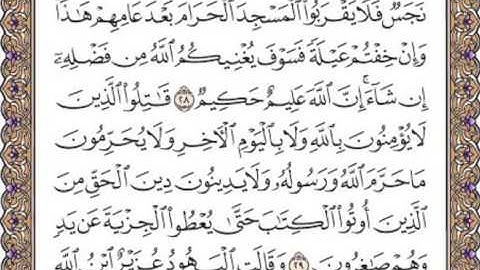 نَجَسٌ فَلَا يَقْرَبُوا۟ ٱلْمَسْجِدَ ٱلْحَرَامَ بَعْدَ عَامِهِمْ هَٰذَا
وَإِنْ خِفْتُمْ عَيْلَةً فَسَوْفَ يُغْنِيكُمُ ٱللَّهُ مِن فَضْلِهِۦٓ
إِن شَآءَ ۚ إِنَّ ٱللَّهَ عَلِيمٌ حَكِيمٌ ﴿٢٨﴾ قَٰتِلُوا۟ ٱلَّذِينَ
لَا يُؤْمِنُونَ بِٱللَّهِ وَلَا بِٱلْيَوْمِ ٱلْأَخِرِ وَلَا يُحَرِّمُونَ
مَا حَرَّمَ ٱللَّهُ وَرَسُولُهُۥ وَلَا يَدِينُونَ دِينَ ٱلْحَقِّ مِنَ
ٱلَّذِينَ أُوتُوا۟ ٱلْكِتَٰبَ حَتَّىٰ يُعْطُوا۟ ٱلْجِزْيَةَ عَن يَدٍ
وَهُمْ صَٰغِرُونَ ﴿٢٩﴾ وَقَالَتِ ٱلْيَهُودُ عُزَيْرٌ ٱبْنُ ٱللَّهِ